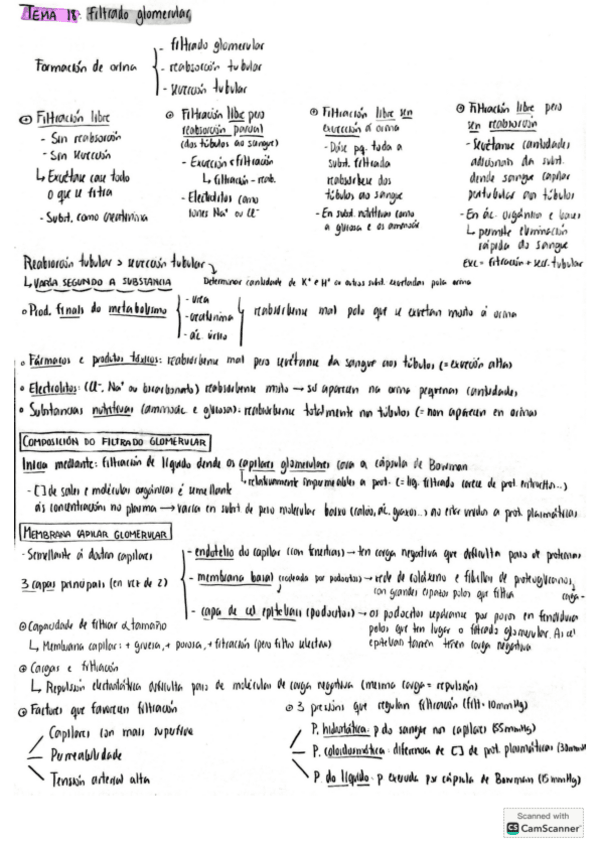 TEMA 18: Filtrado glomerular
Formación de orina
- filtrado glomerular
- reabsorción tubular
- secreción tubular
Filtración libre
- Sin reabsorción
- Sin secreción
↳ Excrétase case todo
o que se filtra
- Subst. como creatinina
Filtración libre pero
reabsorción parcial
(dos túbulos ao sangue)
- Excreción < filtración
↳ filtración - reab.
- Electrolitos como
iones Na⁺ ou Cl⁻
Filtración libre sen
excreción á orina
- Dáse pq. toda a
subst. filtrada
reabsórbese dos
túbulos ao sangue
- En subst. nutritivas como
a glucosa e os aminoác
Filtración libre pero
sen reabsorción
- Secrétanse cantidades
adicionais da subst.
dende sangue capilar
peritubular aos túbulos
- En ác. orgánicos e bases
↳ permite eliminación
rápida do sangue
Exc = filtración + sec. tubular
Reabsorción tubular > secreción tubular
↳ VARÍA SEGUNDO A SUBSTANCIA
Determinar cantidade de K⁺ e H⁺ ou outras subst. excretadas pola orina
Prod. finais do metabolismo
- urea
- creatinina
- ác. úrico
reabsórbense mal polo que se excretan moito á orina
Fármacos e produtos tóxicos: reabsórbense mal pero secrétanse da sangue aos túbulos (= excreción altas)
Electrolitos: (Cl⁻, Na⁺ ou bicarbonato) reabsórbense moito → só aparecen na orina pequenas cantidades
Substancias nutritivas (aminoác e glucosa): reabsórbense totalmente nos túbulos (= non aparecen en orina)
COMPOSICIÓN DO FILTRADO GLOMERULAR
Inicia mediante: filtración de líquido dende os capilares glomerulares cara a cápsula de Bowman
↳ relativamente impermeables a prot. (= líq. filtrado carece de prot. eritrocitos...)
- [ ] de sales e moléculas orgánicas é semellante
ás concentracións no plasma → varía en subst de peso molecular baixo (calcio, ác. graxos...) ao estar unidos a prot. plasmáticas
MEMBRANA CAPILAR GLOMERULAR
- Semellante á doutros capilares
3 capas principais (en vez de 2)
- endotelio do capilar (con fenestras) → ten carga negativa que dificulta paso de proteínas
- membrana basal (rodeada por podocitos) → rede de coláxeno e fibrillas de proteoglucanos,
con grandes espazos polos que filtra
carga -
- capa de cél epiteliais (podocitos) → os podocitos sepáranse por poros en fendidura
polos que ten lugar o filtrado glomerular. As cel
epiteliais tamén teñen carga negativa
Capacidade de filtrar α tamaño
↳ Membrana capilar: + grosa, + porosa, + filtración (pero filtro selectivo)
Cargas e filtración
↳ Repulsión electrostática dificulta paso de moléculas de carga negativa (mesma carga = repulsión)
Factores que favorecen filtración
Capilares con máis superficie
Permeabilidade
Tensión arterial alta
3 presións que regulan filtración (filt. 10mmHg)
P. hidrostática: p do sangue nos capilares (55mmHg)
P. coloidosmótica: diferencia de [ ] de prot. plasmáticas (30mmHg
P do líquido: p exercida por cápsula de Bowman (15mmHg)
Scanned with
CS CamScanner